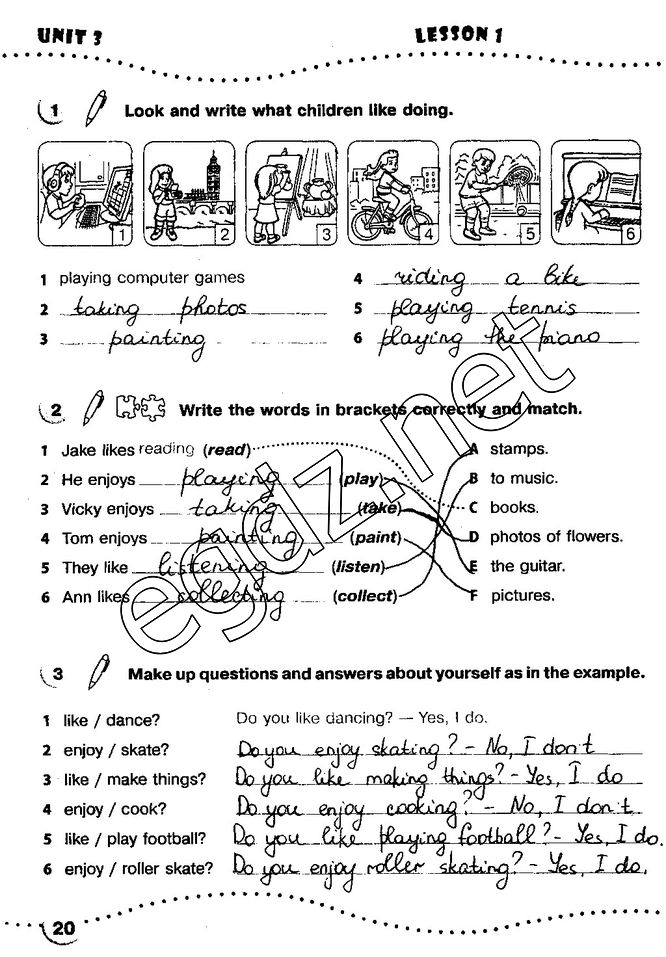 UNIT 3 LESSON 1
1 Look and write what children like doing.
1 2 3 4 5 6
1 playing computer games
2 taking photos
3 painting
4 riding a bike
5 playing tennis
6 playing the piano
2 Write the words in brackets correctly and match.
1 Jake likes reading (read) A stamps.
2 He enjoys playing (play) B to music.
3 Vicky enjoys taking (take) C books.
4 Tom enjoys painting (paint) D photos of flowers.
5 They like listening (listen) E the guitar.
6 Ann likes collecting (collect) F pictures.
egdz.net
3 Make up questions and answers about yourself as in the example.
1 like / dance? Do you like dancing? — Yes, I do.
2 enjoy / skate? Do you enjoy skating? - No, I don't
3 like / make things? Do you like making things? - Yes, I do
4 enjoy / cook? Do you enjoy cooking? - No, I don't
5 like / play football? Do you like playing football? - Yes, I do.
6 enjoy / roller skate? Do you enjoy roller skating? - Yes, I do.
20